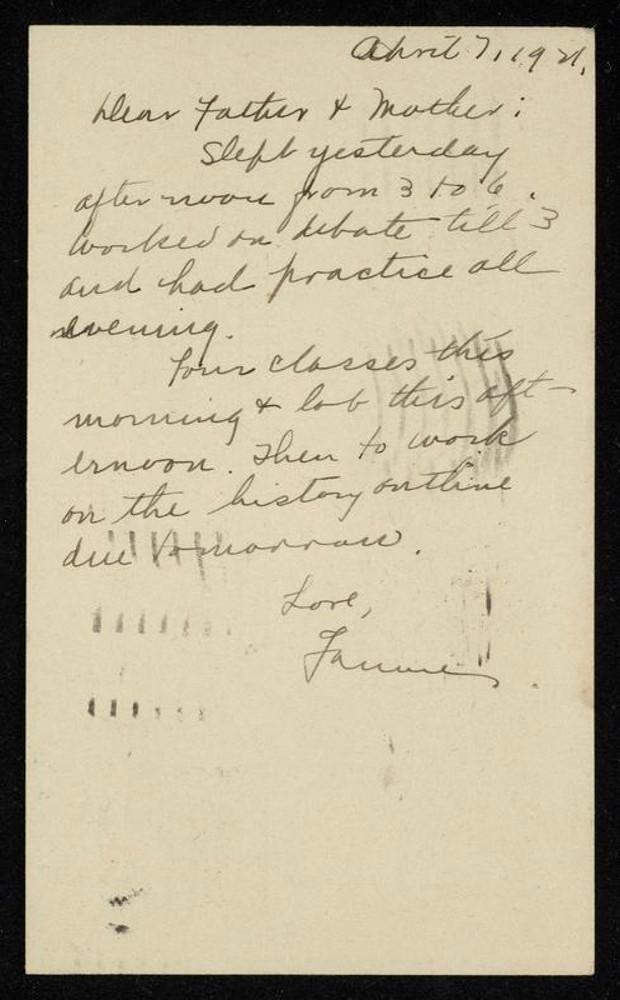 April 7, 1921.
Dear Father & Mother:
Slept yesterday
afternoon from 3 to 6.
Worked on debate till 3
and had practice all
evening.
Four classes this
morning & lab this aft-
ernoon. Then to work
on the history outline
due tomorrow.
Love,
Fannie.